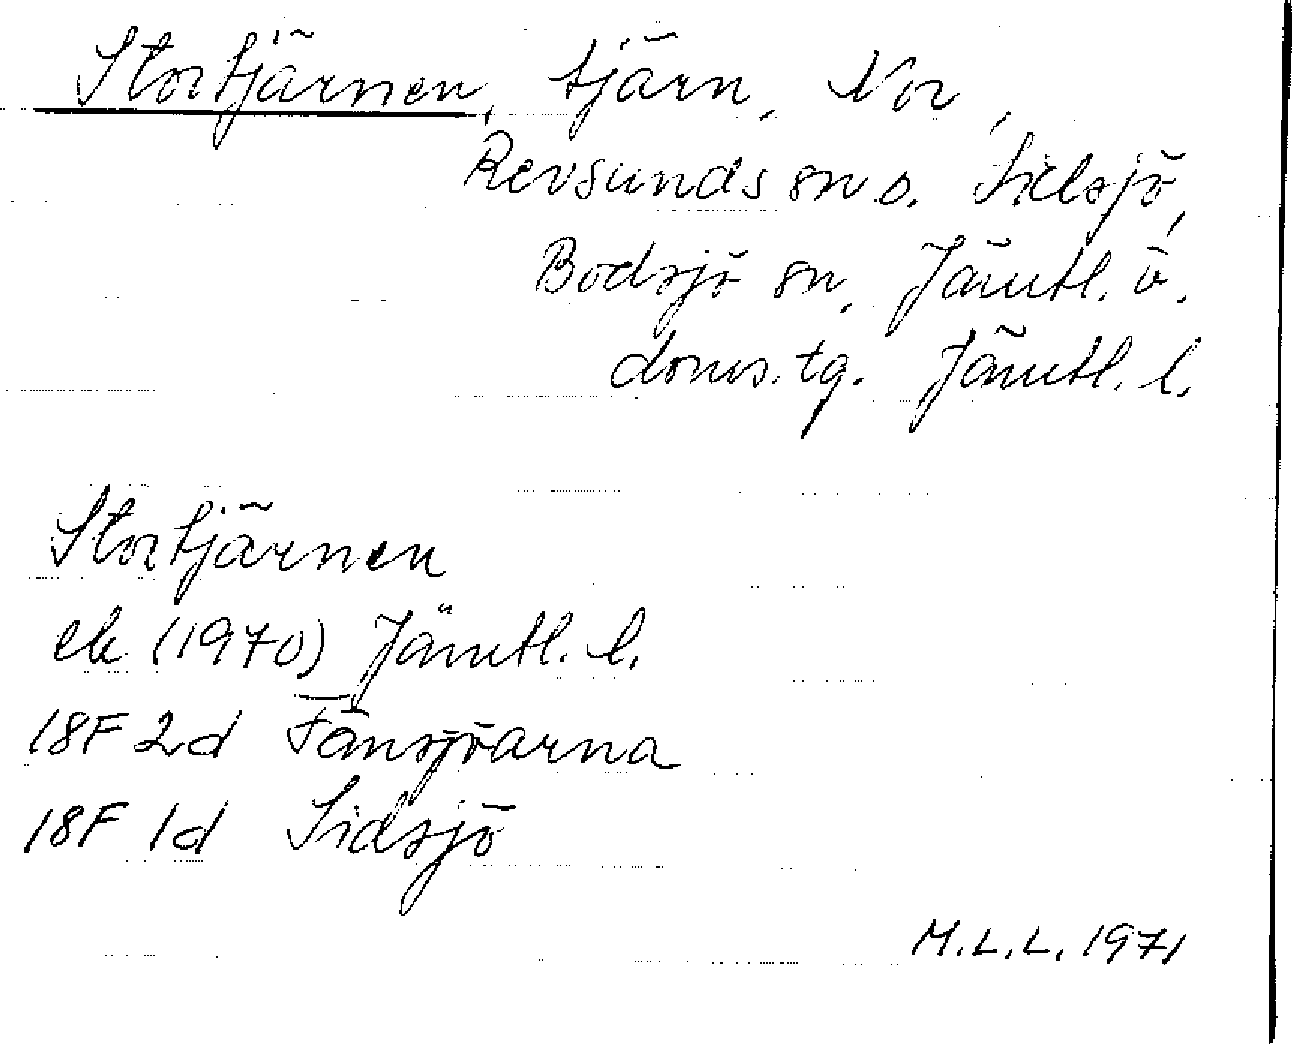 Stortjärnen, tjärn, Nor,
Revsunds sn o. Sidsjö,
Bodsjö sn, Jämtl. ö.
doms.tg. Jämtl. l.
Stortjärnen
ek (1970) Jämtl. l.
18F 2d Fansjöarna
18F 1d Sidsjö
M.L.L. 1971